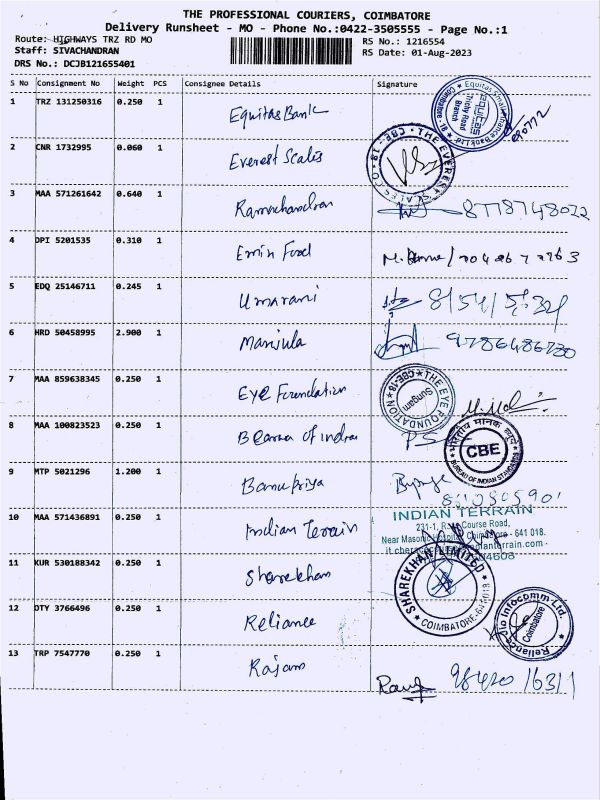 THE PROFESSIONAL COURIERS, COIMBATORE
Delivery Runsheet - MO - Phone No.:0422-3505555 - Page No.:1
Route: HIGHWAYS TRZ RD MO
RS No.: 1216554
Staff: SIVACHANDRAN
RS Date: 01-Aug-2023
DRS No.: DCJB121655401
S No Consignment No Weight PCS Consignee Details Signature
1 TRZ 131250316 0.250 1 Equitas Bank
Equitas Small Finance Bank Ltd
equitas
Trichy Road
Branch
Coimbatore - 18
2 CNR 1732995 0.060 1 Everest Scales
THE EVEREST SCALES CO CBE - 18
3 MAA 571261642 0.640 1 Ramachandran 8778748022
4 DPI 5201535 0.310 1 Emin Food
5 EDQ 25146711 0.245 1 Umarani
6 HRD 50458995 2.900 1 Manjula 9786486730
7 MAA 859638345 0.250 1 Eye Foundation
THE EYE FOUNDATION CBE-18
Sungam
8 MAA 100823523 0.250 1 of India
भारतीय मानक ब्यूरो
CBE
BUREAU OF INDIAN STANDARDS
9 MTP 5021296 1.200 1 Banupriya
10 MAA 571436891 0.250 1 Indian Terain
INDIAN TERRAIN
231-1, Course Road,
Near Masonic Hospital, Coimbatore - 641 018.
11 KUR 530188342 0.250 1 Sharekhan
SHAREKHAN LIMITED
COIMBATORE-641018
12 DTY 3766496 0.250 1 Reliance
Reliance Jio Infocomm Ltd.
Coimbatore
13 TRP 7547770 0.250 1 Rajam
98420 16311